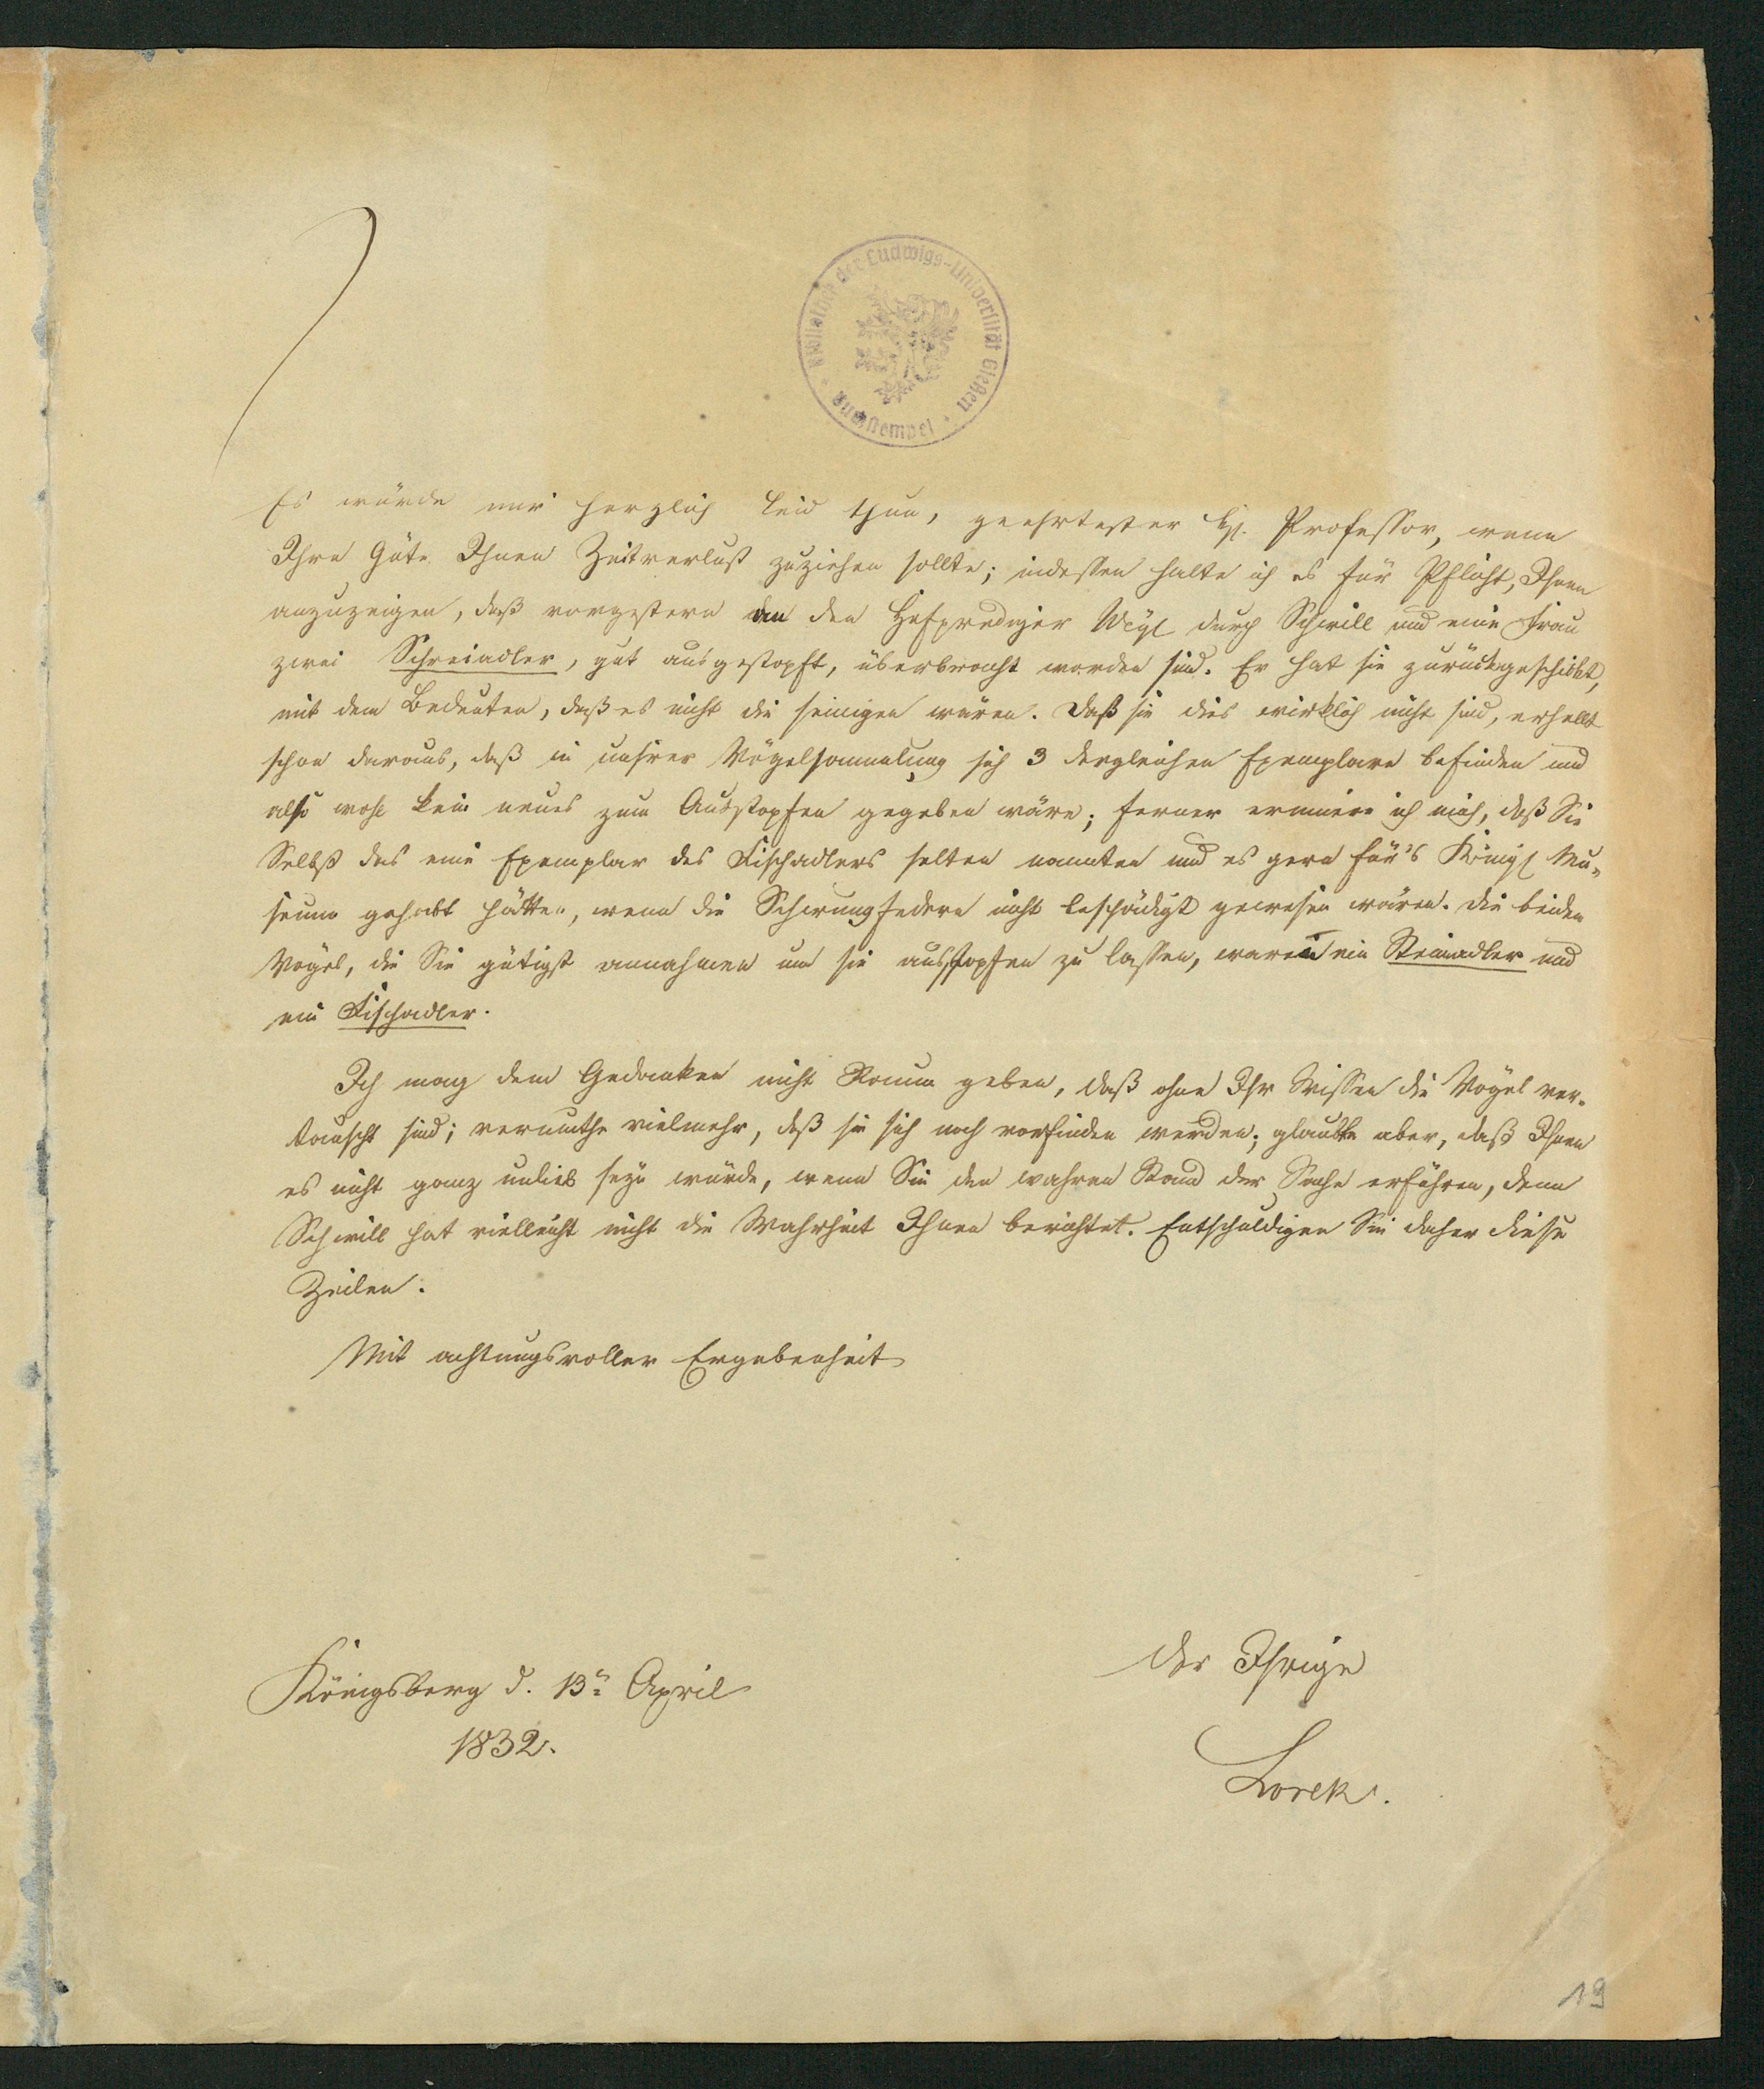 Bibliothek der Ludwigs-Universität Gießen
Buchstempel
Es würde mir herzlich leid thun, geehrtester H. Professor, wenn
Ihre Güte Ihnen Zeitverlust zuziehen sollte; indessen halte ich es für Pflicht, Ihnen
anzuzeigen, daß vorgestern den Hofprediger Weyl durch Schwill und eine Frau
zwei Schreiadler, gut ausgestopft, überbracht worden sind. Er hat sie zurückgeschickt,
mit dem Bedeuten, daß es nicht die seinigen wären. Daß sie dies wirklich nicht sind, erhellt
schon daraus, daß in unsrer Vögelsammlung sich 3 dergleichen Exemplare befinden und
also wohl kein neues zum Ausstopfen gegeben wäre; ferner erinnere ich mich, daß Sie
Selbst das eine Exemplar des Fischadlers selten nannten und es gern für's Königl Mu-
seum gehabt hätten, wenn die Schwungfedern nicht beschädigt gewesen wären. Die beiden
Vögel, die Sie gütigst annahmen um sie ausstopfen zu lassen, waren ein Steinadler und
ein Fischadler.
Ich mag dem Gedanken nicht Raum geben, daß ohne Ihr Wissen die Vögel ver-
tauscht sind; vermuthe vielmehr, daß sie sich noch vorfinden werden; glaubte aber, daß Ihnen
es nicht ganz unlieb seyn würde, wenn Sie den wahren Stand der Sache erführen, denn
Schwill hat vielleicht nicht die Wahrheit Ihnen berichtet. Entschuldigen Sie daher diese
Zeilen.
Mit achtungsvoller Ergebenheit
der Ihrige
Königsberg d. 13n April
1832.
Lorek.
19